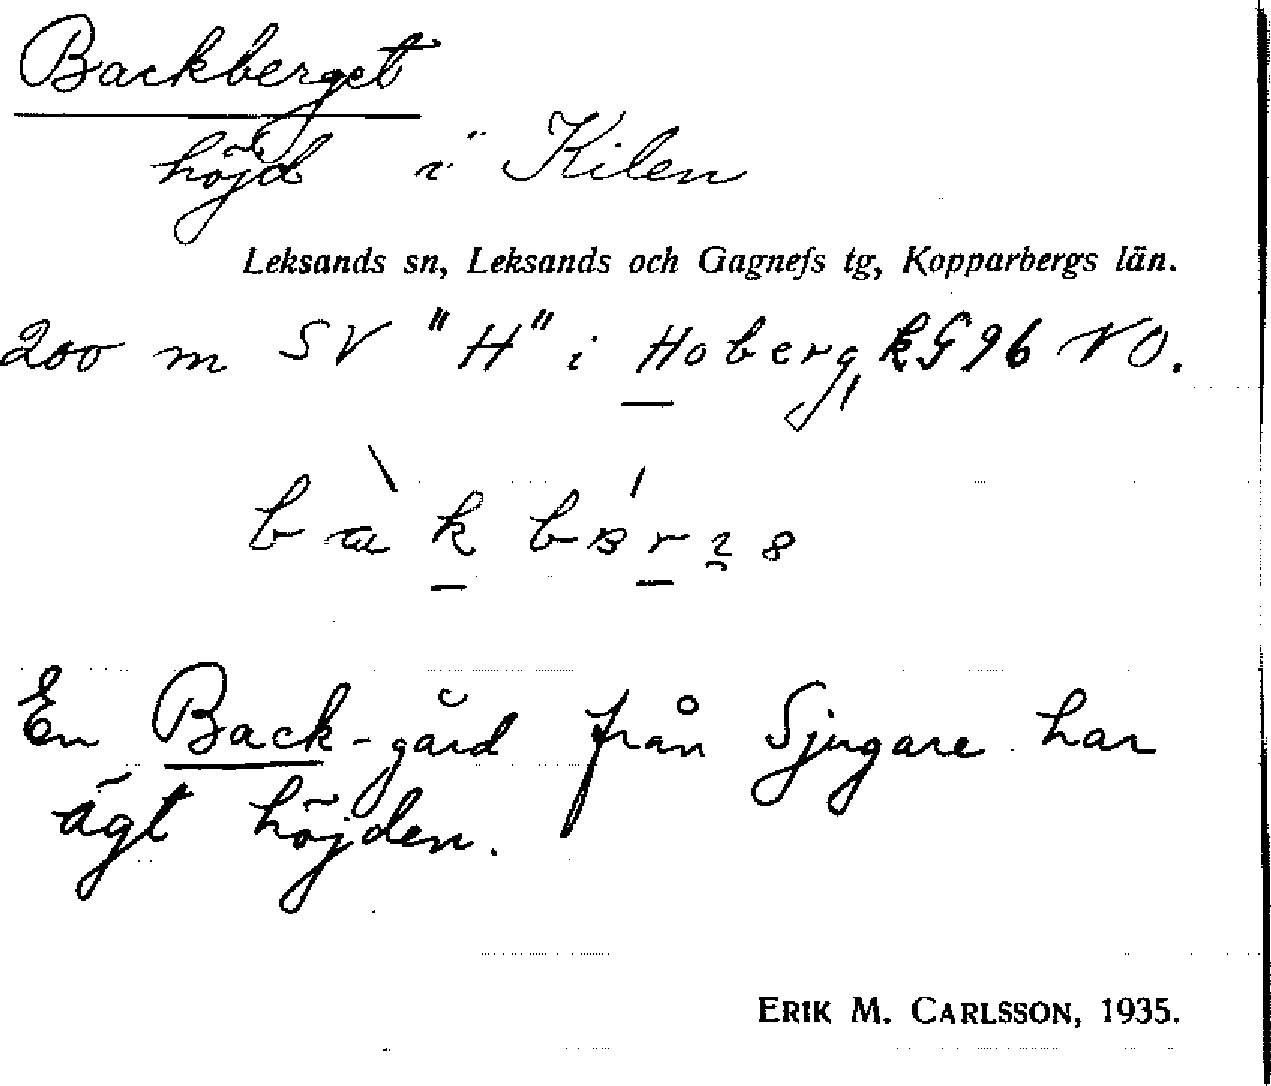 Backberget
höjd i Kilen
Leksands sn, Leksands och Gagnefs tg, Kopparbergs län.
200 m SV "H" i Hoberg, kG 96 NO.
En Back-gård från Sjugare har
ägt höjden.
ERIK M. CARLSSON, 1935.